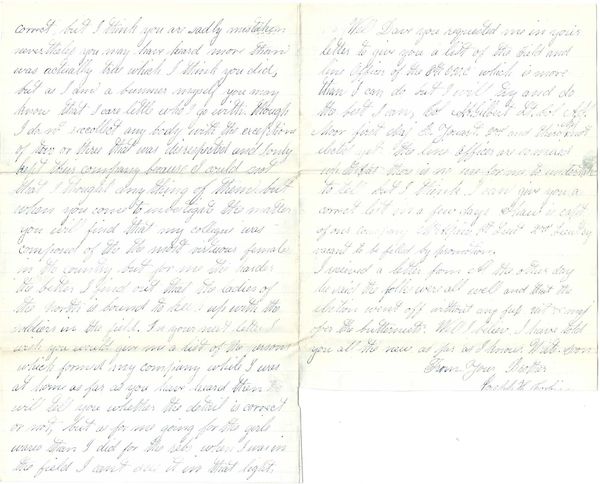 correct but I think you are sadly mistaken
nevertheless you may have heard more than
was actually true which I think you did,
but as I am a bummer myself you may
know that I care little who I go with. though
I do not recollect any body with the exceptions
of two or three that was disrespected and I only
kept their company because I could not
that I thought any thing of them. but
when you come to investigate the matter
you will find that my collegues was
composed of the the most virtuous females
in the country but for me the harder
the better I find out that the ladies of
the north is bound to up with the
soldiers in the field. In your next letter I
wish you would give me a list of the
which formed my company while I was
at home as far as you have heard then I
will tell you whether the detail is correct
or not, but as for me going for the girls
worse than I did for the rebs when I was in
the field I can't see it in that light.
Well Dave you requested me in your
letter to give you a list of the field and
line officers of the which is more
than I can do but I will try and do
the best I can, Col Lt Col
Moor first Maj 2nd and third not
The line officers are
there is no me to
to tell but I think I can give you a
correct list in a few days is capt
of our company 1st Lieut 2nd Lieutcy
vacant to be filled by promotion.
I received a letter from the other day
he said the folks were all well and that the
election went off without any
for the butternuts. Well I believe I have told
you all the news as far as I know. Write soon
From Your Brother
Joseph